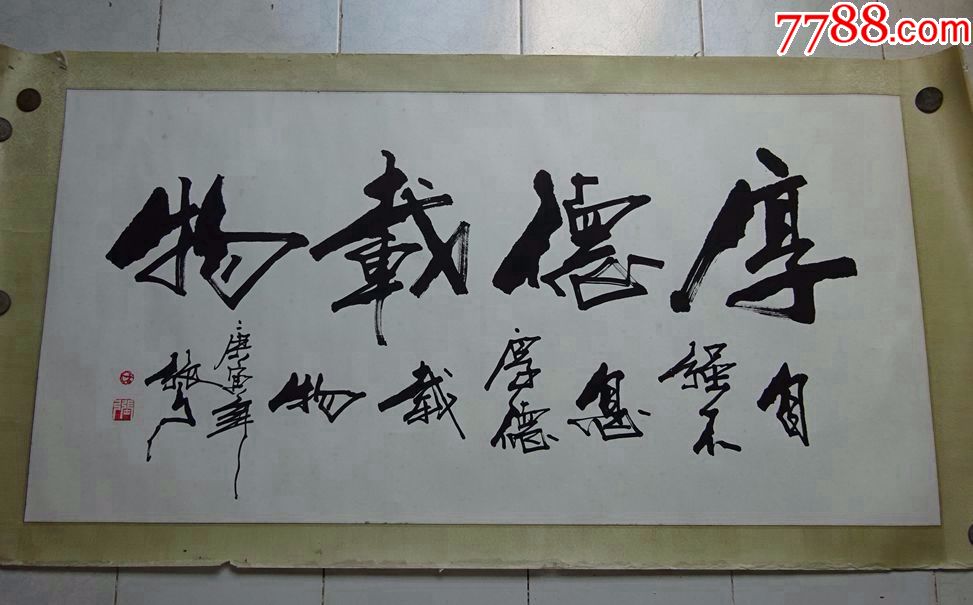 7788.com
厚德載物
自強不息厚德載物
庚寅年